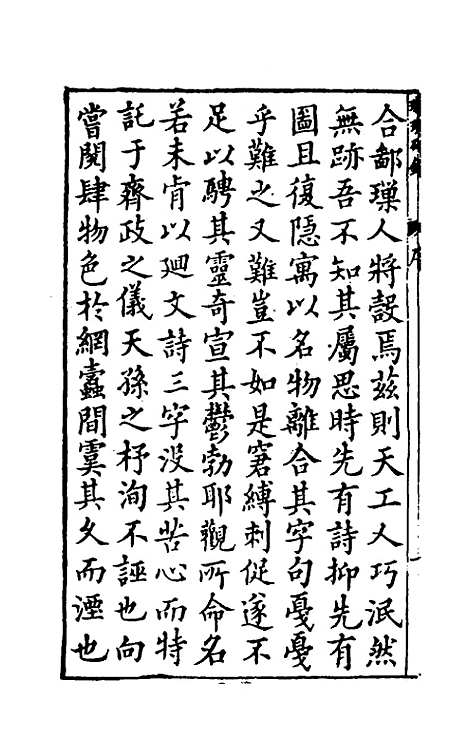 合人將焉茲則天工人巧泯然
無跡吾不知其屬思時先有詩抑先有
圖且復隱寓以名物離合其字句戛戛
乎難之又難豈不如是窘縛刺促遂不
足以騁其靈奇宣其鬱勃耶觀所命名
若未肯以廻文詩三字沒其苦心而特
託于齊政之儀天孫之杼洵不誣也向
嘗閱肆物色於網蠹間其久而湮也